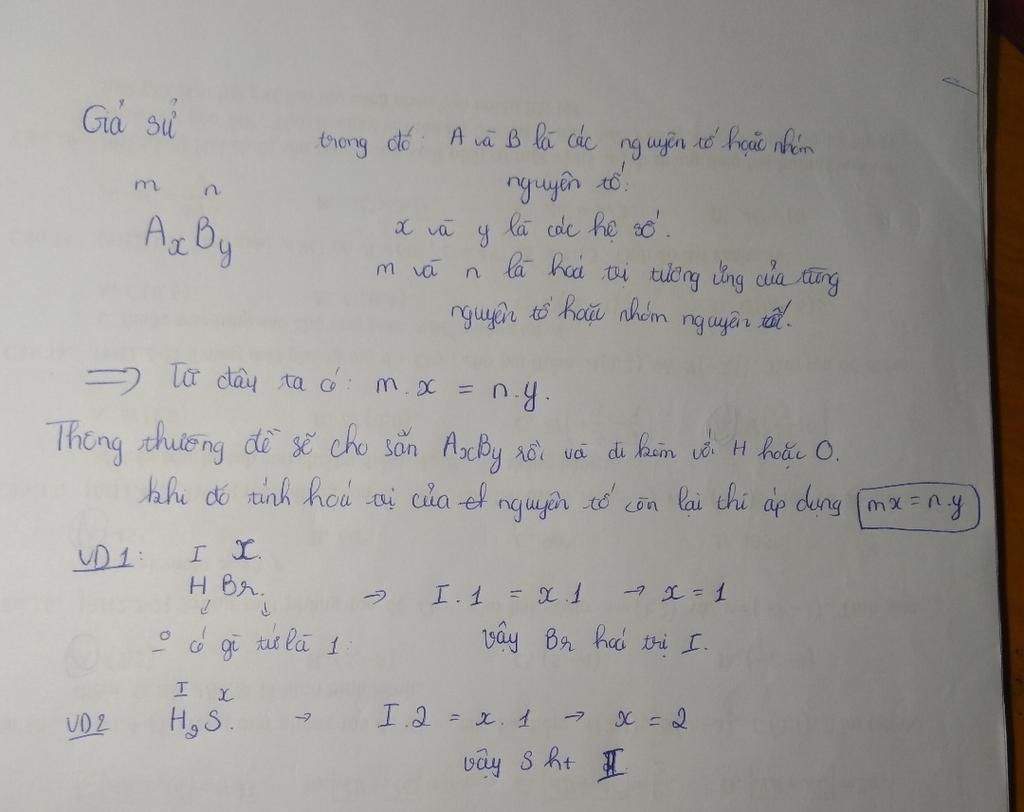 Giả sử
trong đó: A và B là các nguyên tố hoặc nhóm
nguyên tố.
m n
AxBy
x và y là các hệ số.
m và n là hoá trị tương ứng của từng
nguyên tố hoặc nhóm nguyên tố.
=> Từ đây ta có: m.x = n.y.
Thông thường đề sẽ cho sẵn AxBy rồi và đi kèm với H hoặc O.
khi đó tính hoá trị của nguyên tố còn lại thì áp dụng mx = n.y
VD1: I x.
H Br. → I.1 = x.1 → x = 1
có gì tức là 1: vậy Br hoá trị I.
I x
VD2 H2S. → I.2 = x.1 → x = 2
vậy S ht II